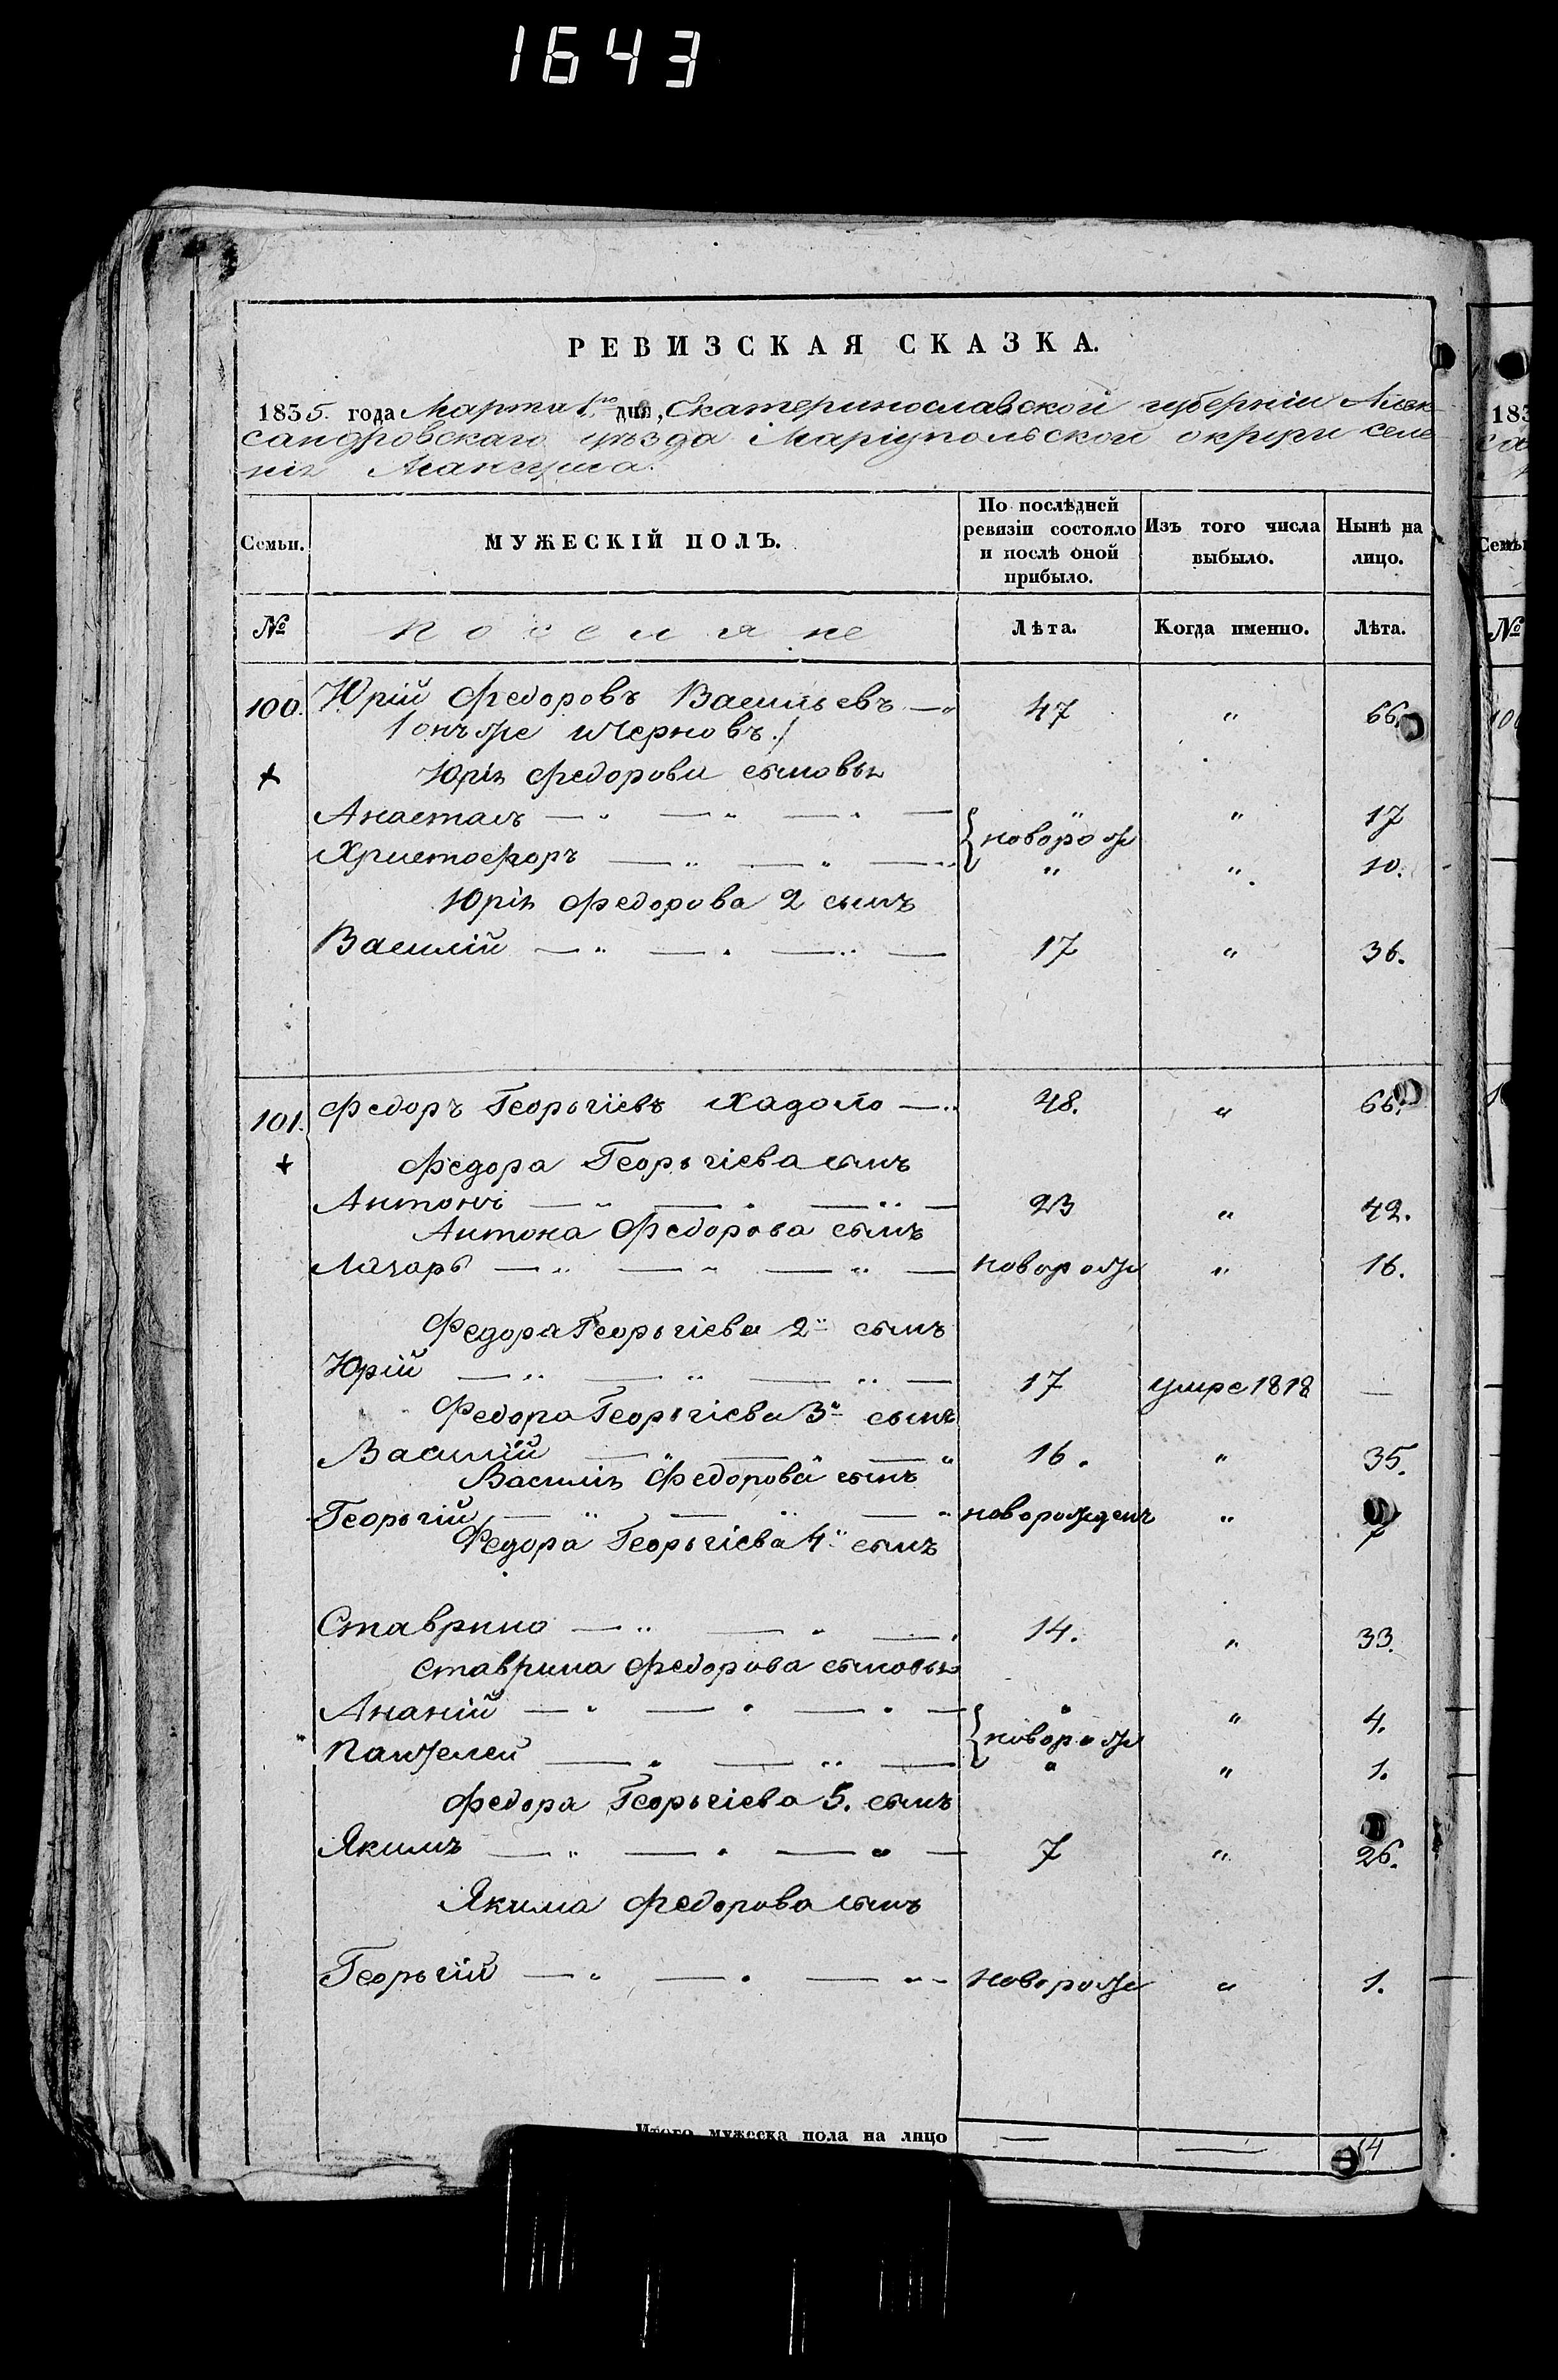 1643
РЕВИЗСКАЯ СКАЗКА.
1835. года Марта 1го дня, Екатеринославской губерніи Алек
сандровскаго уѣзда Маріупольской округи селе
нія Мангуша.
Семьи. МУЖЕСКІЙ ПОЛЪ. По послѣдней ревизіи состояло и послѣ оной прибыло. Изъ того числа выбыло. Нынѣ на лицо.
№ Поселяне Лѣта. Когда именно. Лѣта.
100. Юрій Федоровъ Васильевъ — " 47 " 66.
/онъ же Черновъ./
Юрія Федорова сыновья
Анастасъ — " — " — " — " " 17
{новорож
Христофоръ — " — " — " " " 10.
Юрія Федорова 2 сынъ
Василій — " — " — " — 17 " 36.
101. Федоръ Георьгіевъ Хаджио — " 48. " 66.
Федора Георьгіева сынъ
Антонъ — " — " — " — 23 " 42.
Антона Федорова сынъ
Лазарь — " — " — " — новорож " 16.
Федора Георьгіева 2й сынъ
Юрій — " — " — " — 17 умре 1818 —
Федора Георьгіева 3й сынъ
Василій — " — " — " 16. " 35.
Василія Федорова сынъ
Георьгій — " — " — " новорожденъ " 7
Федора Георьгіева 4й сынъ
Ставрино — " — " — " 14. " 33.
Ставрина Федорова сыновья
Ананій — " — " — " — " " 4.
{новорож
Пантелей — " — " — " " 1.
Федора Георьгіева 5. сынъ
Якимъ — " — " — " — 7 " 26.
Якима Федорова сынъ
Георьгій — " — " — " - новорож " 1.
Итого мужеска пола на лицо — — 14